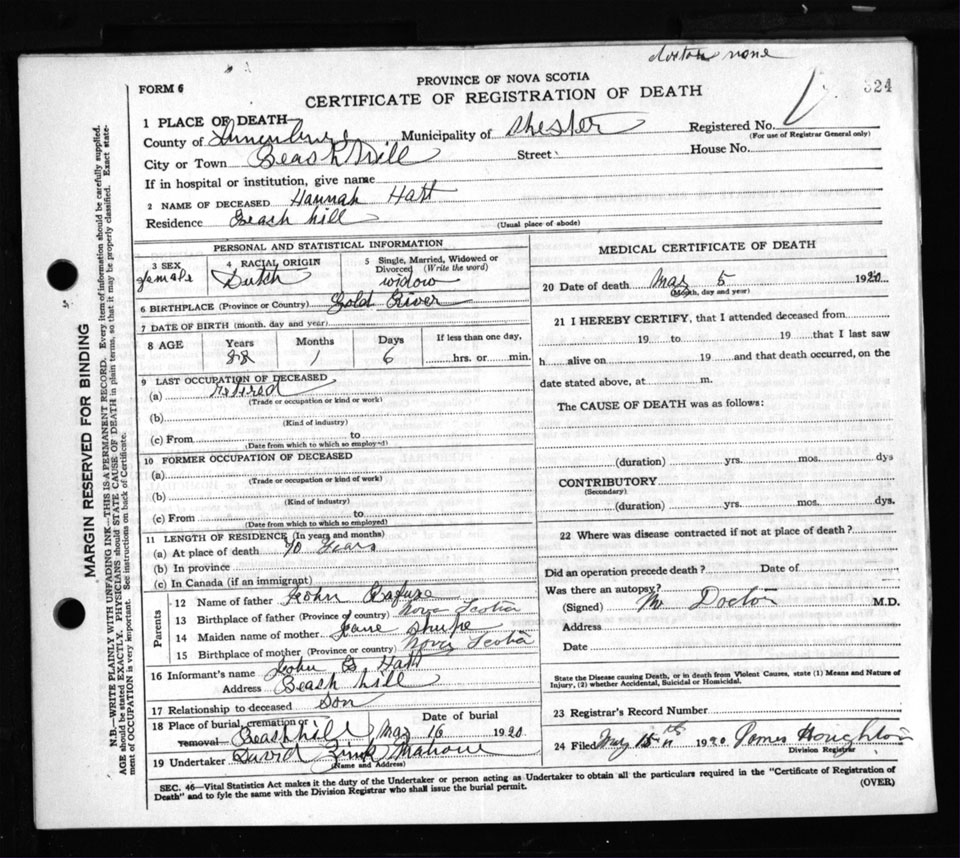 doctor none
FORM 6
PROVINCE OF NOVA SCOTIA
CERTIFICATE OF REGISTRATION OF DEATH
324
1 PLACE OF DEATH—
County of Lunenburg Municipality of Chester Registered No.
(For use of Registrar General only)
City or Town Beach Hill Street House No.
If in hospital or institution, give name
2 NAME OF DECEASED Hannah Hatt
Residence Beach hill (Usual place of abode)
PERSONAL AND STATISTICAL INFORMATION
3 SEX female
4 RACIAL ORIGIN Dutch
5 Single, Married, Widowed or Divorced (Write the word) widow
6 BIRTHPLACE (Province or Country) Gold River
7 DATE OF BIRTH (month, day and year)
8 AGE Years Months Days If less than one day,
88 1 6 hrs. or min.
9 LAST OCCUPATION OF DECEASED
(a) retired
(Trade or occupation or kind or work)
(b)
(Kind of industry)
(c) From to
(Date from which to which so employed)
10 FORMER OCCUPATION OF DECEASED
(a)
(Trade or occupation or kind of work)
(b)
(Kind of industry)
(c) From to
(Date from which to which so employed)
11 LENGTH OF RESIDENCE (In years and months)
(a) At place of death 70 Years
(b) In province
(c) In Canada (if an immigrant)
Parents
12 Name of father John
13 Birthplace of father (Province or country) Nova Scotia
14 Maiden name of mother Jane Shupe
15 Birthplace of mother (Province or country) Nova Scotia
16 Informant's name John B. Hatt
Address Beach hill
17 Relationship to deceased Son
18 Place of burial, cremation or removal Beach hill Date of burial May 16 1920
19 Undertaker David Zink Mahone
(Name and Address)
MEDICAL CERTIFICATE OF DEATH
20 Date of death May 5 1920
(Month, day and year)
21 I HEREBY CERTIFY, that I attended deceased from
19 to 19 that I last saw
h alive on 19 and that death occurred, on the
date stated above, at m.
The CAUSE OF DEATH was as follows:
(duration) yrs. mos. dys
CONTRIBUTORY
(Secondary)
(duration) yrs. mos. dys.
22 Where was disease contracted if not at place of death?
Did an operation precede death? Date of
Was there an autopsy?
(Signed) No Doctor M.D.
Address
Date
State the Disease causing Death, or in death from Violent Causes, state (1) Means and Nature of
Injury, (2) whether Accidental, Suicidal or Homicidal.
23 Registrar's Record Number
24 Filed May 15 th 1920 James Houghton
Division Registrar
SEC. 46—Vital Statistics Act makes it the duty of the Undertaker or person acting as Undertaker to obtain all the particulars required in the "Certificate of Registration of
Death" and to fyle the same with the Division Registrar who shall issue the burial permit.
(OVER)
MARGIN RESERVED FOR BINDING
N.B.—WRITE PLAINLY WITH UNFADING INK—THIS IS A PERMANENT RECORD. Every item of information should be carefully supplied.
AGE should be stated EXACTLY. PHYSICIANS should STATE CAUSE OF DEATH in plain terms, so that it may be properly classified. Exact statement of OCCUPATION is very important. See instructions on back of Certificate.